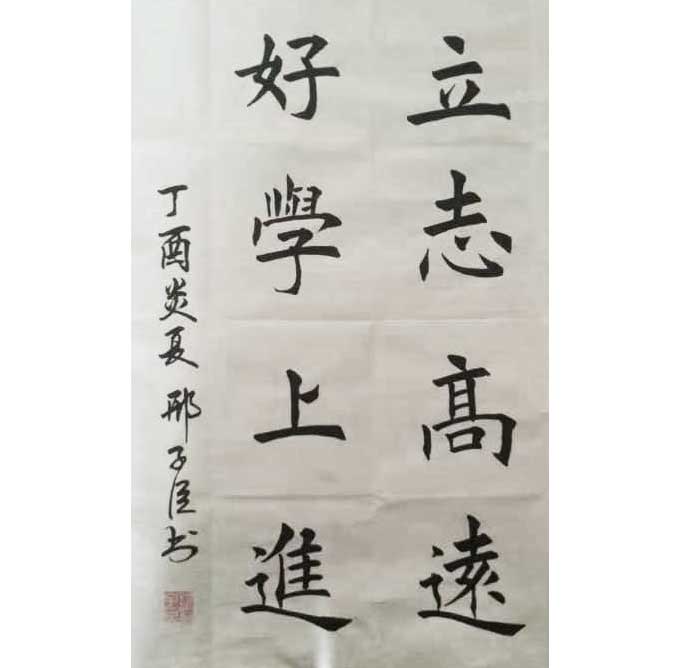 立志高遠
好學上進
丁酉炎夏 邢子臣书